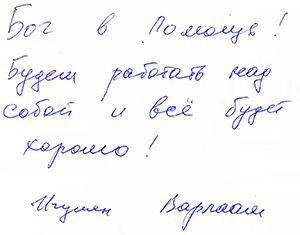 Бог в помощь!
Будем работать над
собой и всё будет
хорошо!
Игумен Варлаам